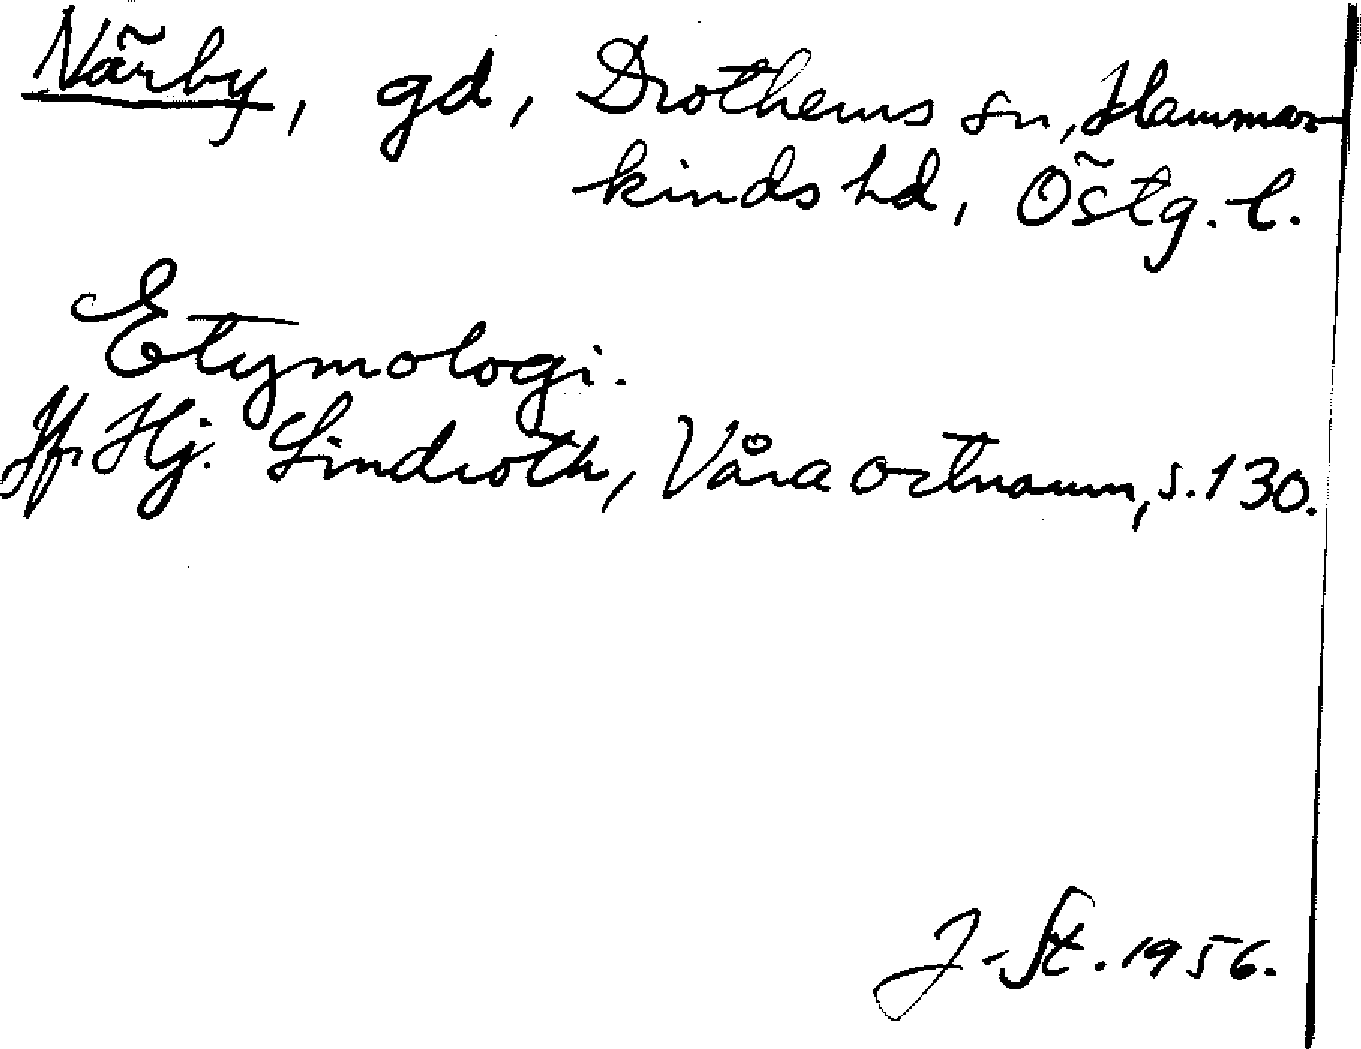 Närby, gd, Drothems sn, Hammar-
kinds hd, Östg. l.
Etymologi.
Jfr Hj. Lindroth, Våra ortnamn, s. 130.
J-St. 1956.